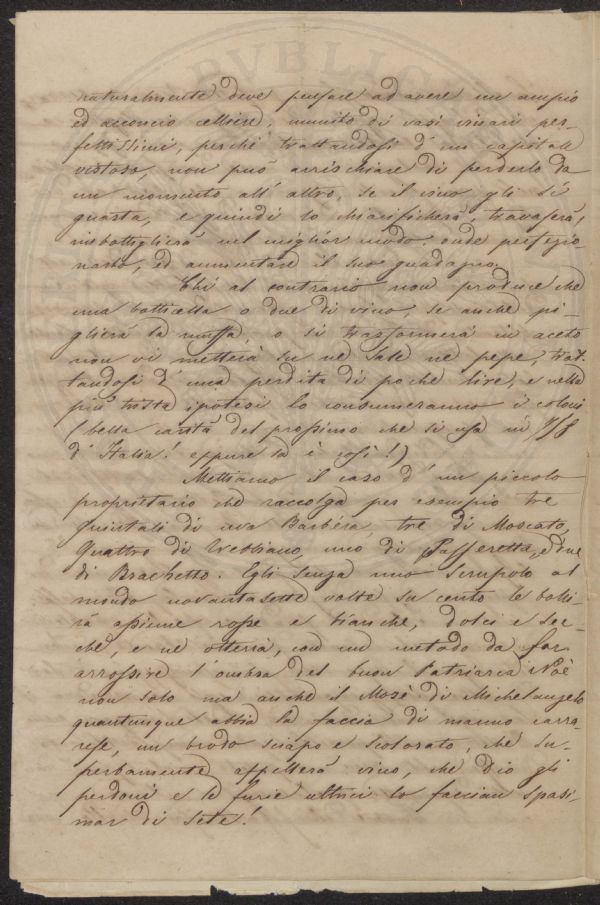 PVBLIC
naturalmente deve pensare ad avere un ampio
ed acconcio celliere, munito di vasi vinari per-
fettissimi, perchè trattandosi d'un capitale
vistoso, non può arrischiare di perderlo da
un momento all'altro, se il vino gli si
guasta, e quindi lo chiarificherà, travaserà,
imbottiglierà nel miglior modo, onde perfezio-
narlo, ed aumentare il suo guadagno.
Chi al contrario non produce che
una botticella o due di vino, se anche pi-
glierà la muffa, o si trasformerà in aceto
non vi metterà su nè sale nè pepe, trat-
tandosi d'una perdita di poche lire, e nella
più trista ipotesi lo consumeranno i coloni
(bella carità del prossimo che si usa in
d'Italia! eppure la è così!)
Mettiamo il caso d'un piccolo
proprietario che raccolga per esempio tre
quintali di uva Barbèra, tre di Moscato,
quattro di Trebbiano, uno di Passeretta, e due
di Brachetto. Egli senza uno scrupolo al
mondo novantasette volte su cento le bolli-
rà assieme rosse e bianche, dolci e sec-
che, e ne otterrà, con un metodo da far
arrossire l'ombra del buon Patriarca Noè
non solo ma anche il Mosè di Michelangelo
quantunque abbia la faccia di marmo carra-
rese, un brodo sciapo e scolorato, che su-
perbamente appellerà vino, che Dio gli
perdoni e le furie ultrici lo faccian spasi-
mar di sete!